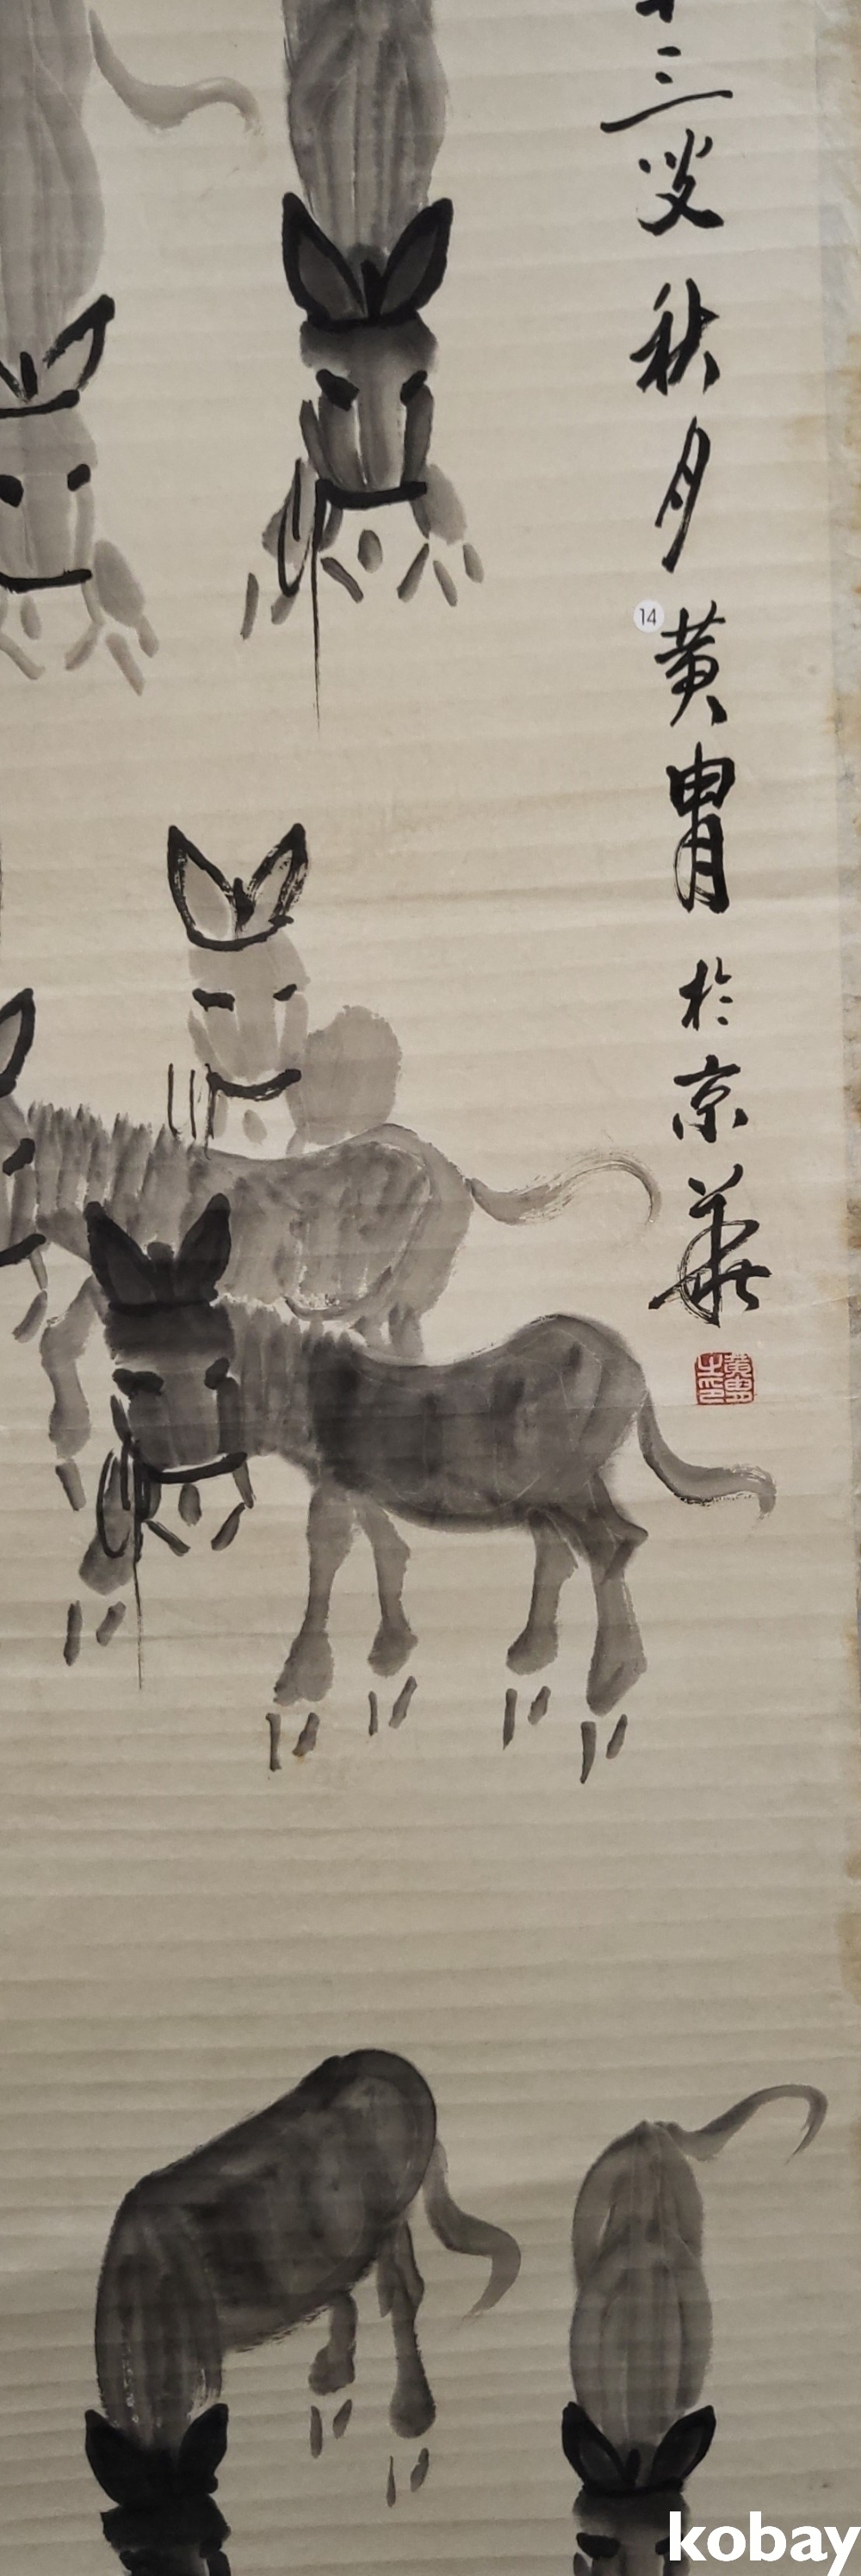 三 秋月黄胄於京華
14
黄胄之印
kobay